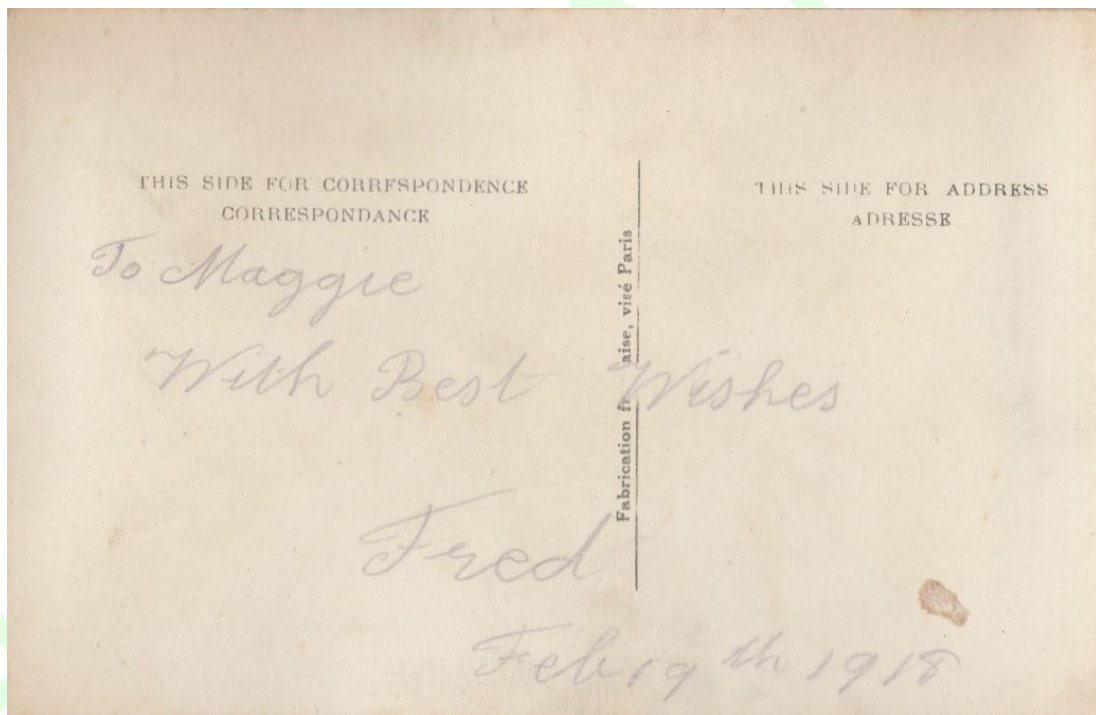 THIS SIDE FOR CORRESPONDENCE
CORRESPONDANCE
THIS SIDE FOR ADDRESS
ADRESSE
Fabrication f aise, visé Paris
To Maggie
With Best Wishes
Fred
Feb 19th 1918